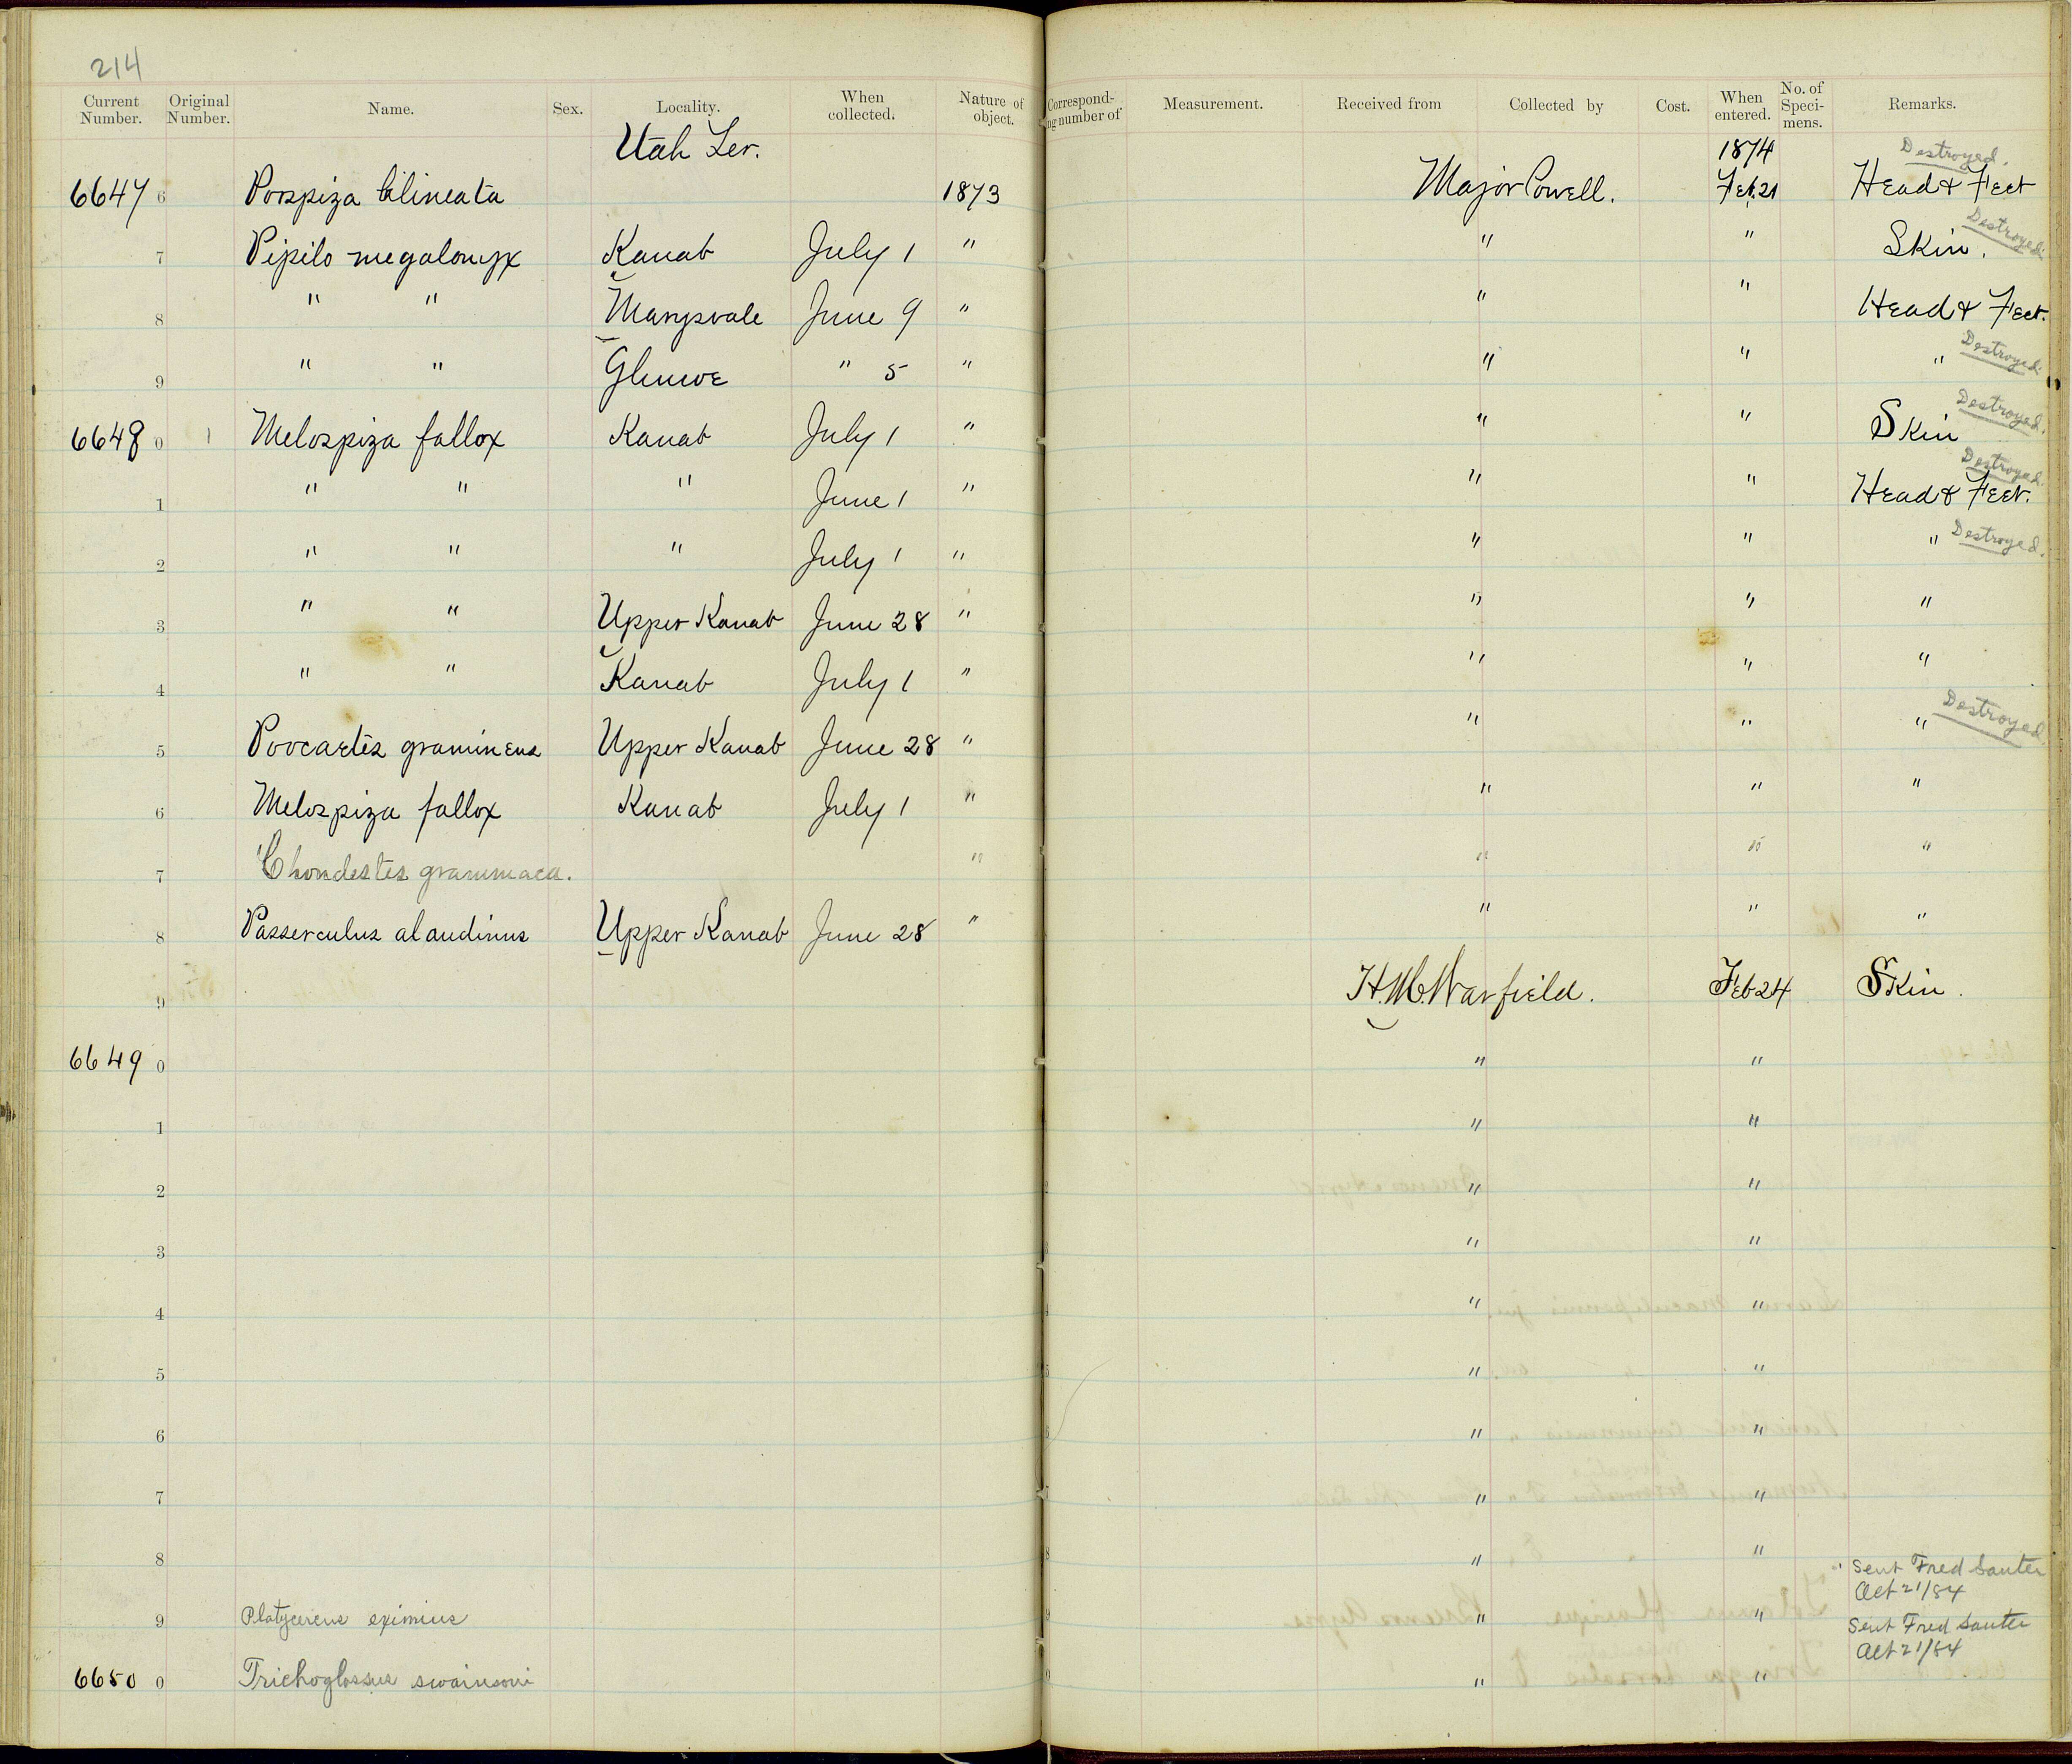 214
Current Number. Original Number. Name. Sex. Locality. When collected. Nature of object. Correspond-ing number of Measurement. Received from Collected by Cost. When entered. No. of Speci-mens. Remarks.
Utah Ter. 1874 Destroyed.
6647 6 Poospiza bilineata 1873 Major Powell. Feb. 21 Head & Feet
7 Pipilo megalonyx Kanab July 1 " " " Skin. Destroyed.
8 " " Marysvale June 9 " " " Head & Feet.
9 " " Glencoe " 5 " " " " Destroyed.
6648 0 1 Melospiza fallox Kanab July 1 " " " Skin Destroyed.
1 " " " June 1 " " " Head & Feet. Destroyed.
2 " " " July 1 " " " " Destroyed.
3 " " Upper Kanab June 28 " " " "
4 " " Kanab July 1 " " " "
5 Poocaetes gramineus Upper Kanab June 28 " " " " Destroyed
6 Melospiza fallox Kanab July 1 " " " "
7 Chondestes grammaca. " " " "
8 Passerculus alaudinus Upper Kanab June 28 " " " "
9 H. M. Warfield. Feb 24 Skin.
6649 0 " "
1 " "
2 " "
3 " "
4 " "
5 " "
6 " "
7 " "
8 " "
9 Platycercus eximius " " Sent Fred Sauter Oct 21/84
6650 0 Trichoglossus swainsoni " " Sent Fred Sauter Oct 21/84